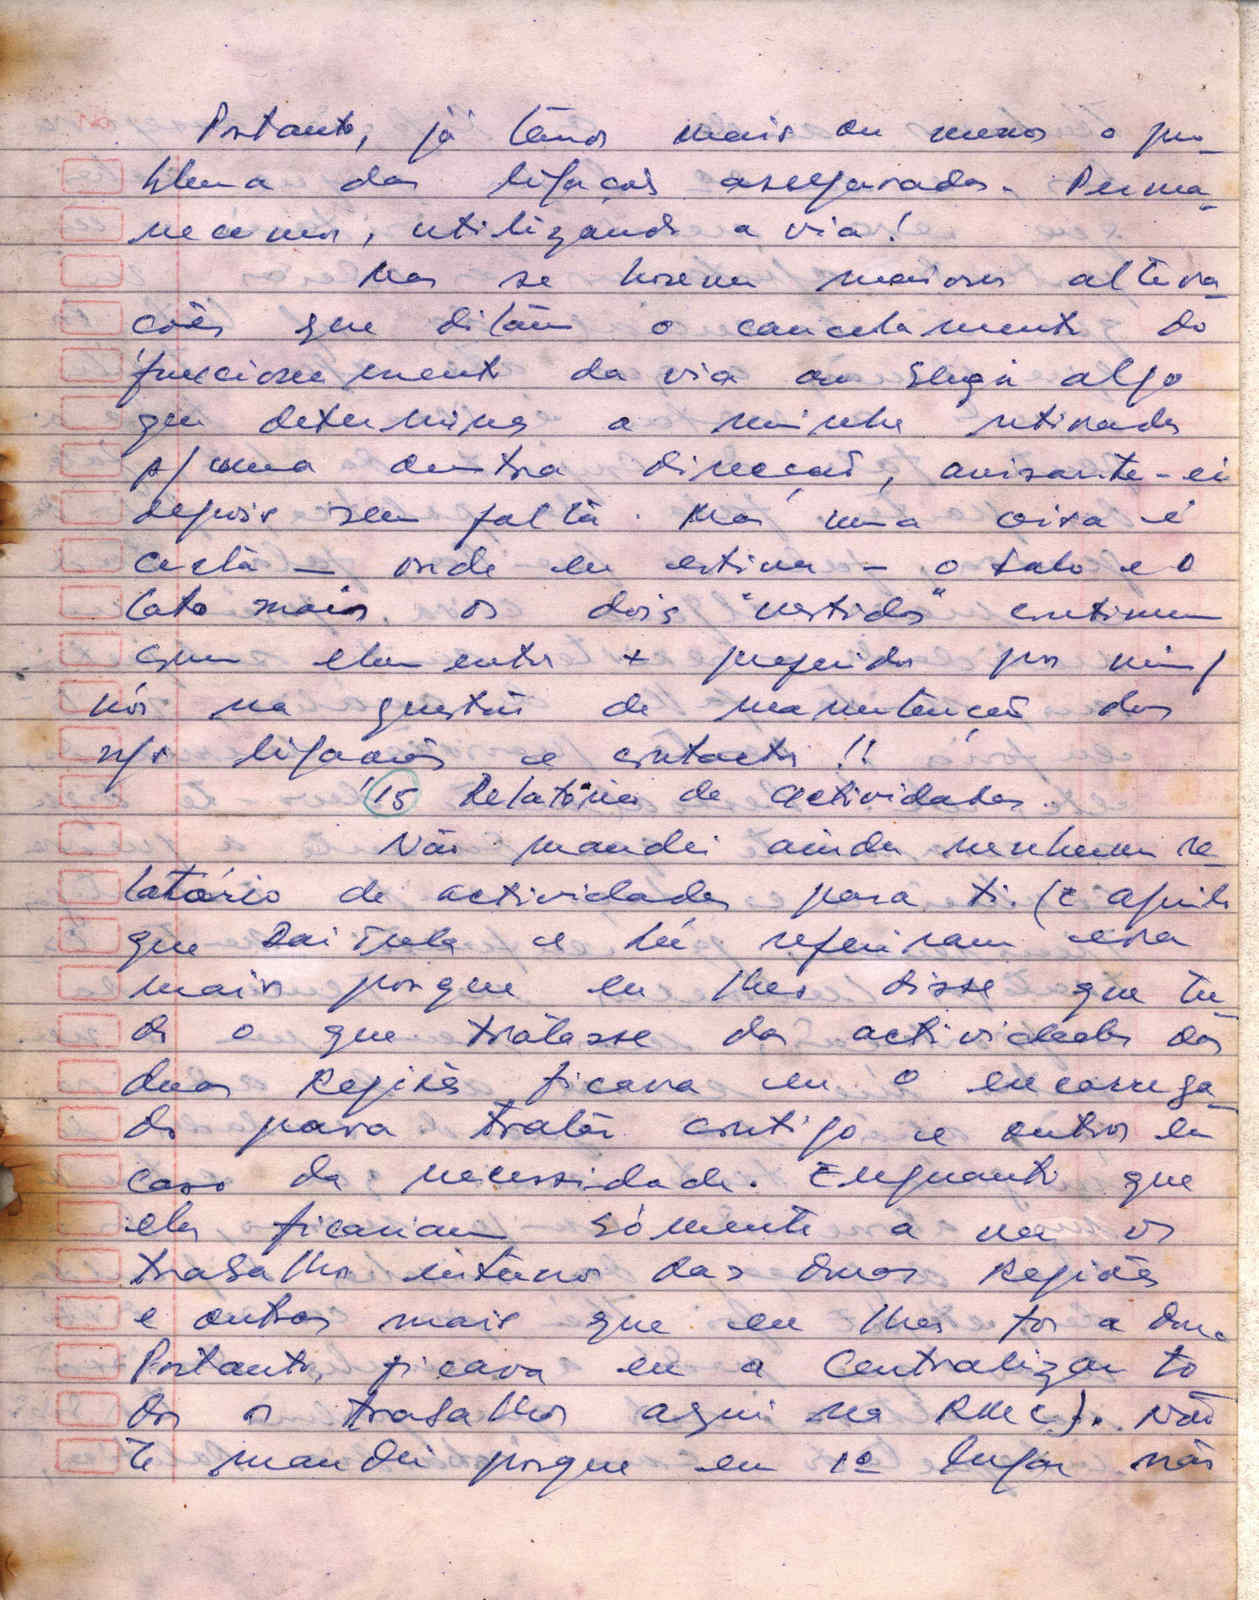 Portanto, já temos mais ou menos o pro-
blema das ligações asseguradas. Perma-
necemos, utilizando a via!
Mas se houver maiores altera-
ções que ditam o cancelamento do
funcionamento da via ou surgir algo
que determine a minha retirada
p/ uma outra direcção, avisar-te-ei
depois sem falta. Mas uma coisa é
certa — onde eu estiver — o
mais os dois "vestidos" continuam
elementos + preferidos por mim/
nós na questão de manutenção das
n/s ligações e contactos!!
15 Relatórios de actividades.
Não mandei ainda nenhum re-
latório de actividades para ti. (E aquilo
que e referiram era
mais porque eu lhes disse que tu-
do o que tratasse das actividades das
duas Regiões ficava eu o encarrega-
do para tratar contigo e outros em
caso da necessidade. Enquanto que
eles ficariam sómente a ver os
trabalhos internos das duas Regiões
e outros mais que eu lhes for a dar.
Portanto, ficava eu a centralizar to
dos os trabalhos aqui na RMC). Não
te mandei porque em 1º lugar não